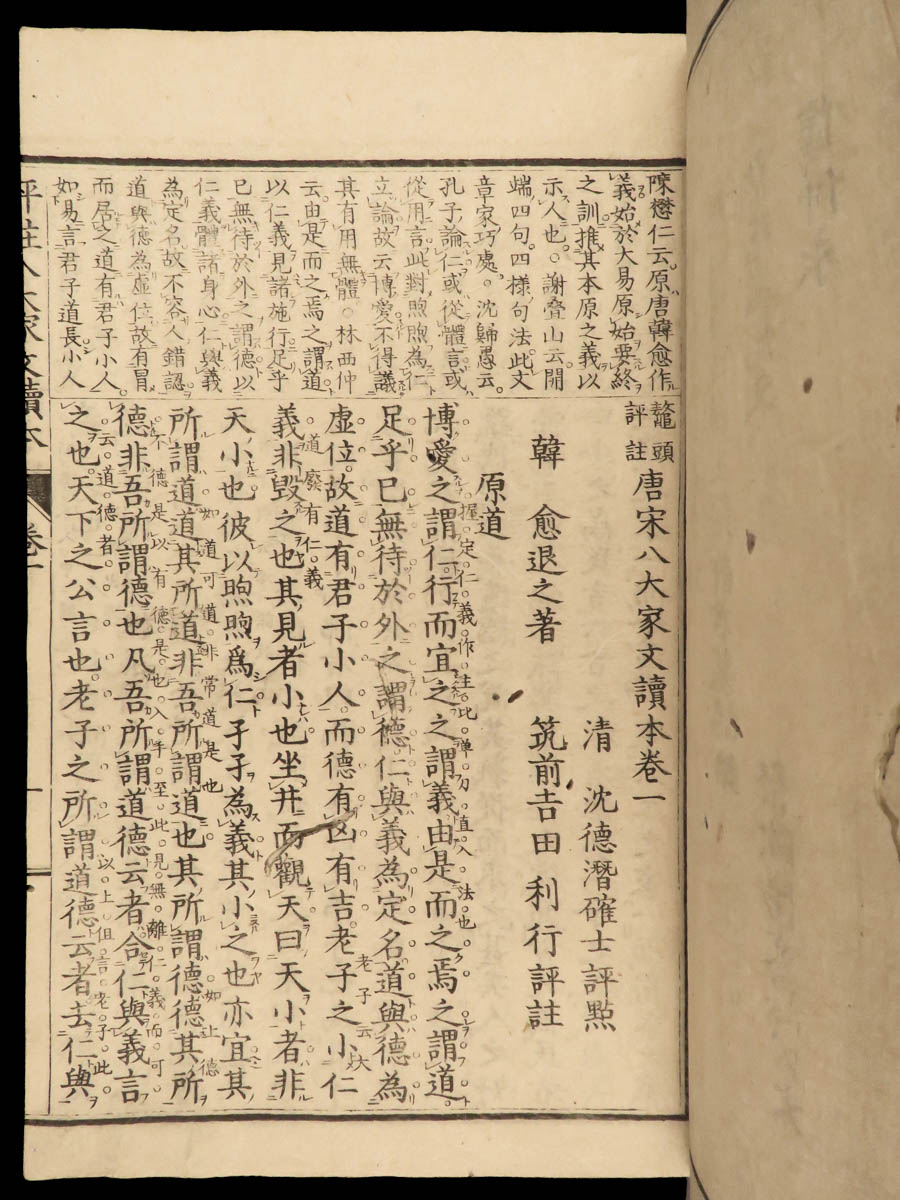 陳懋仁云原唐韓愈作
義始於大易原始要終
之訓推其本原之義以
示人也。謝疊山云開
端四句。四樣句法此文
章家巧處。沈歸愚云。
孔子論仁或從體言或
從用言此對煦煦為仁
立論故云博愛不得議
其有用無體。林西仲
云由是而之焉之謂道
以仁義見諸施行足乎
已無待於外之謂德以
仁義體諸身心仁與義
為定名故不容人錯認
道與德為虛位故有冒
而居之道有君子小人。
如易言君子道長小人
鼇頭評註
唐宋八大家文讀本卷一
清 沈德潛確士評點
韓 愈退之著 筑前吉田利行評註
原道
博愛之謂仁。行而宜之之謂義由是而之焉之謂道。
握定仁義作主。此單刀直入法也。
足乎已無待於外之謂德仁與義為定名道與德為
虛位。故道有君子小人。而德有凶有吉老子之小仁
老子云大道廢有仁義
義非毀之也其見者小也坐井而觀天曰天小者非
天小也彼以煦煦爲仁孑孑為義其小之也亦宜其
所謂道道其所道非吾所謂道也其所謂德德其所
如道可道非常道是也
如上德不德是以有德是也
德非吾所謂德也凡吾所謂道德云者合仁與義言
入手至此見無離仁義而可云道德者。
之也。天下之公言也老子之所謂道德云者去仁與
以上但言老子此
評註八大家文讀本
卷一
一